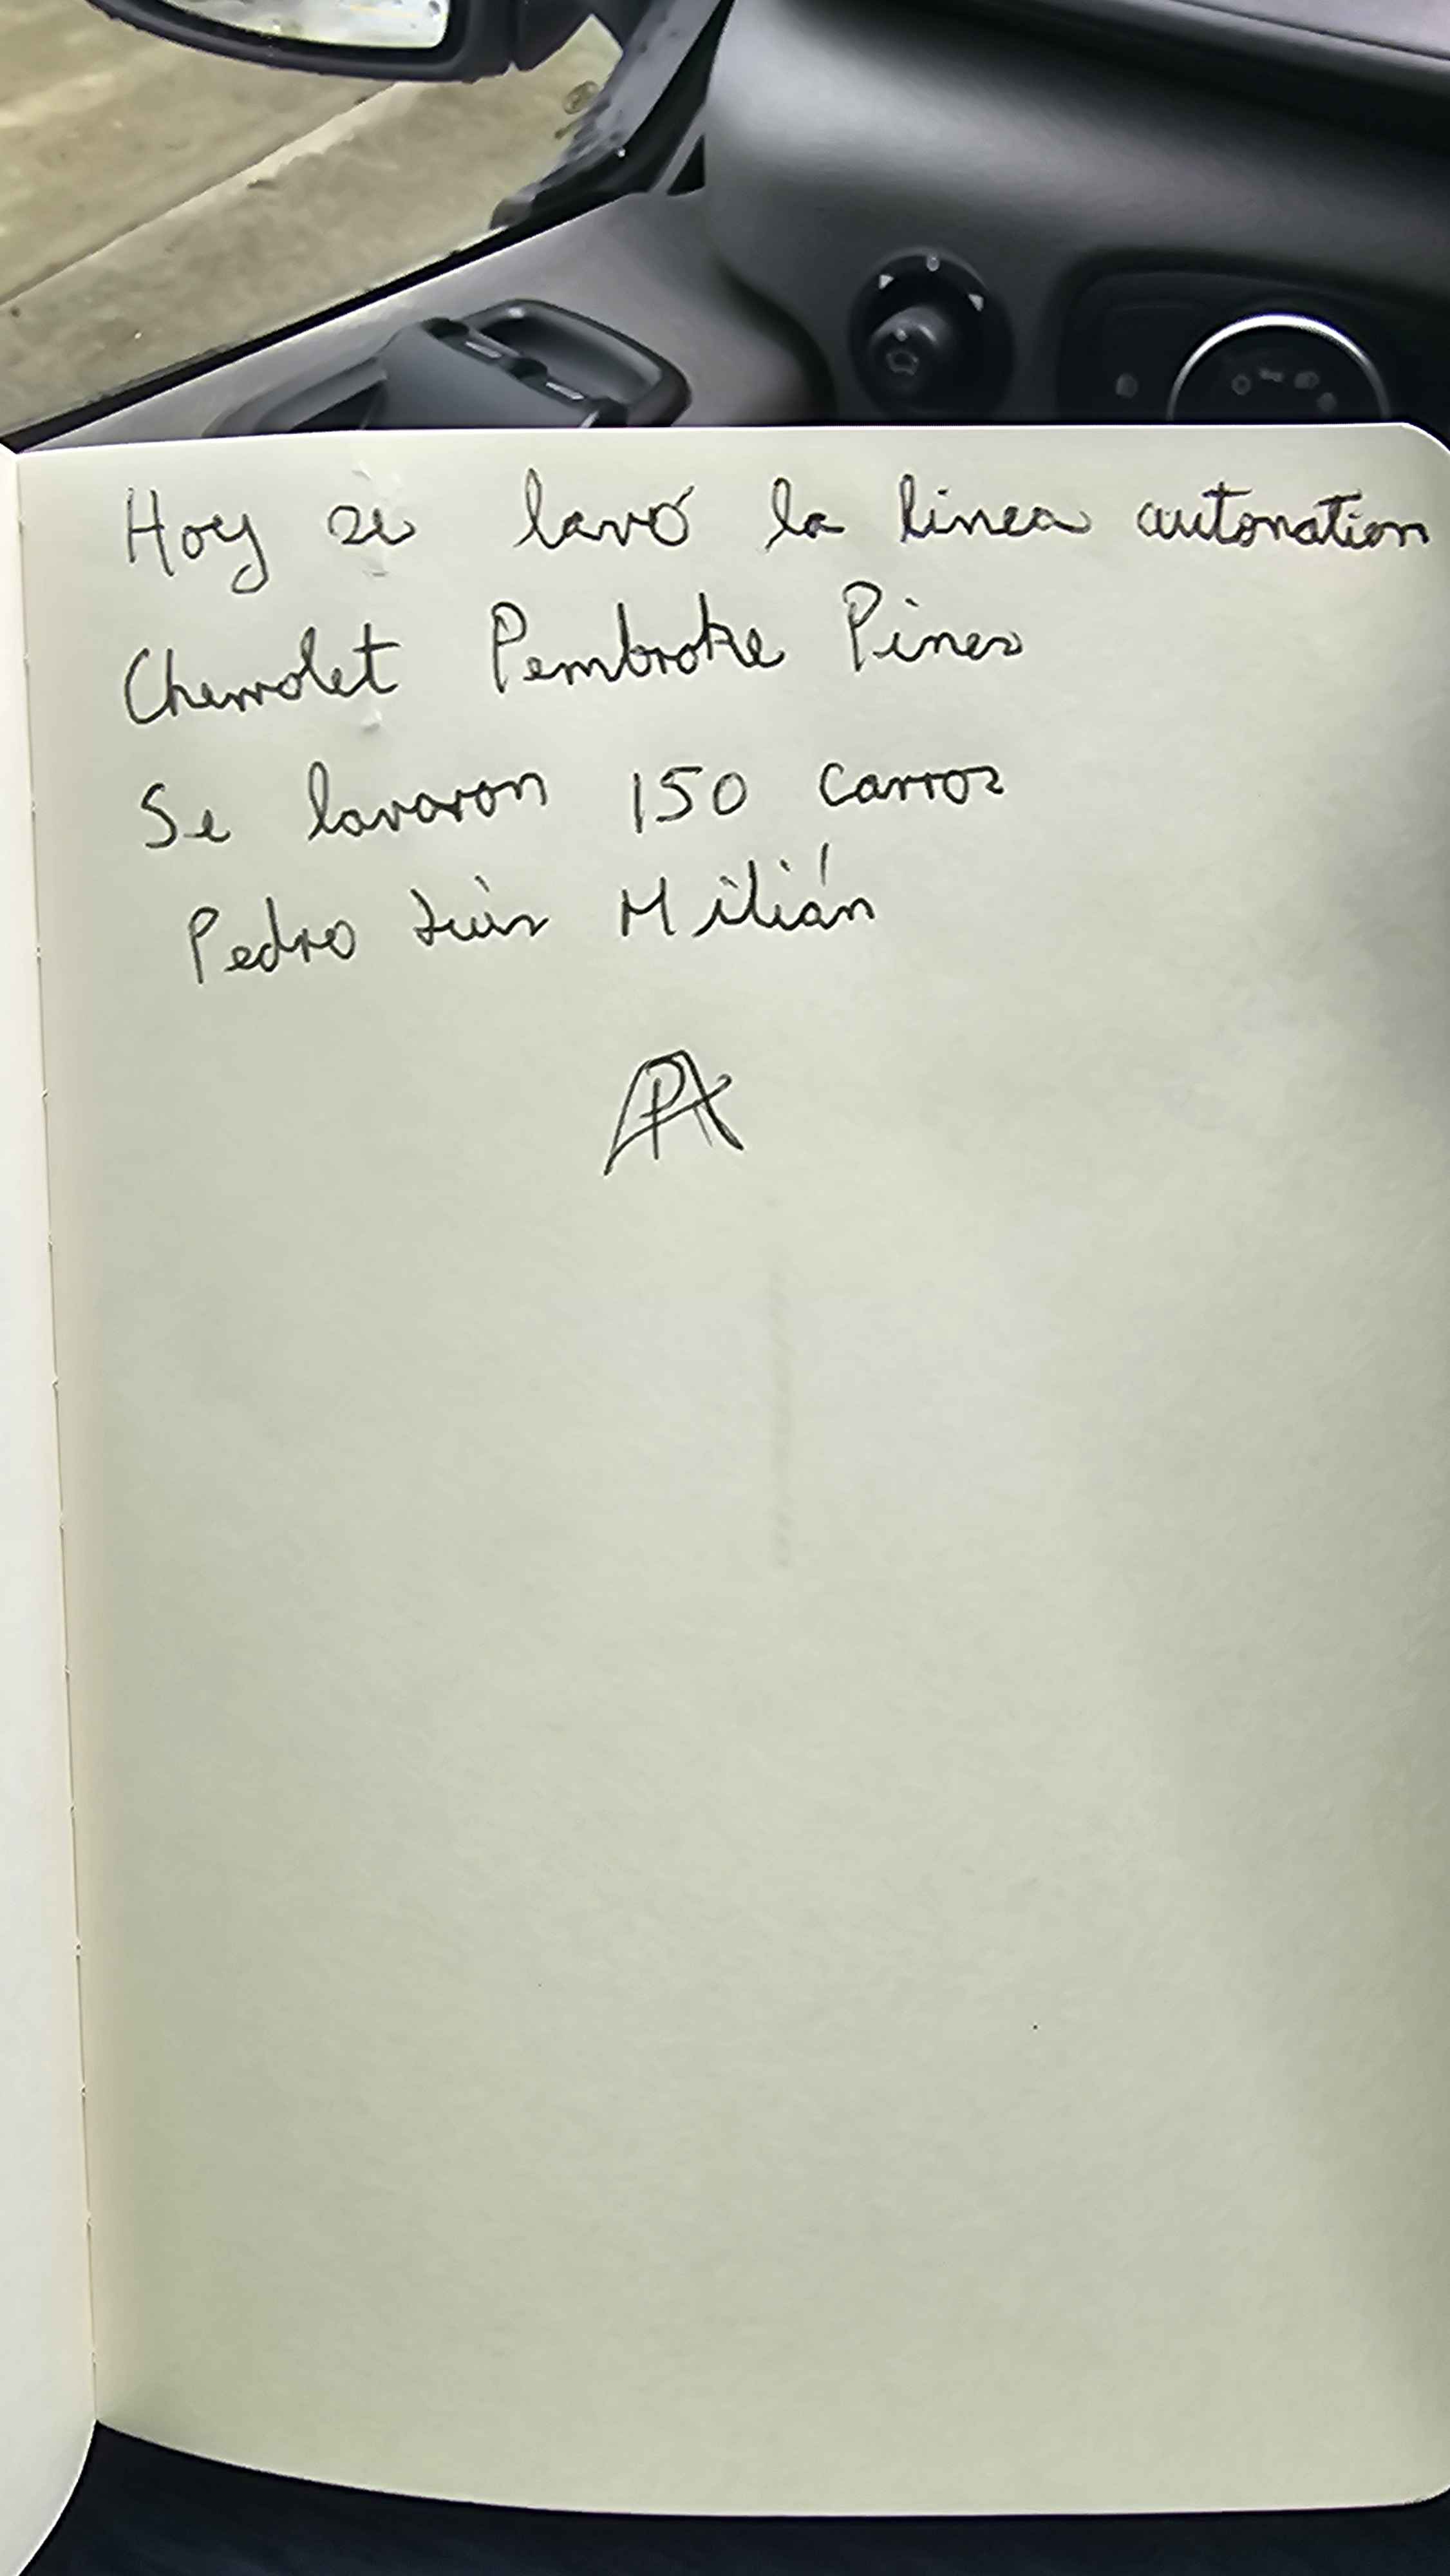 Hoy se lavó la linea autonation
Chevrolet Pembroke Pines
Se lavaron 150 carros
Pedro Luis Milián